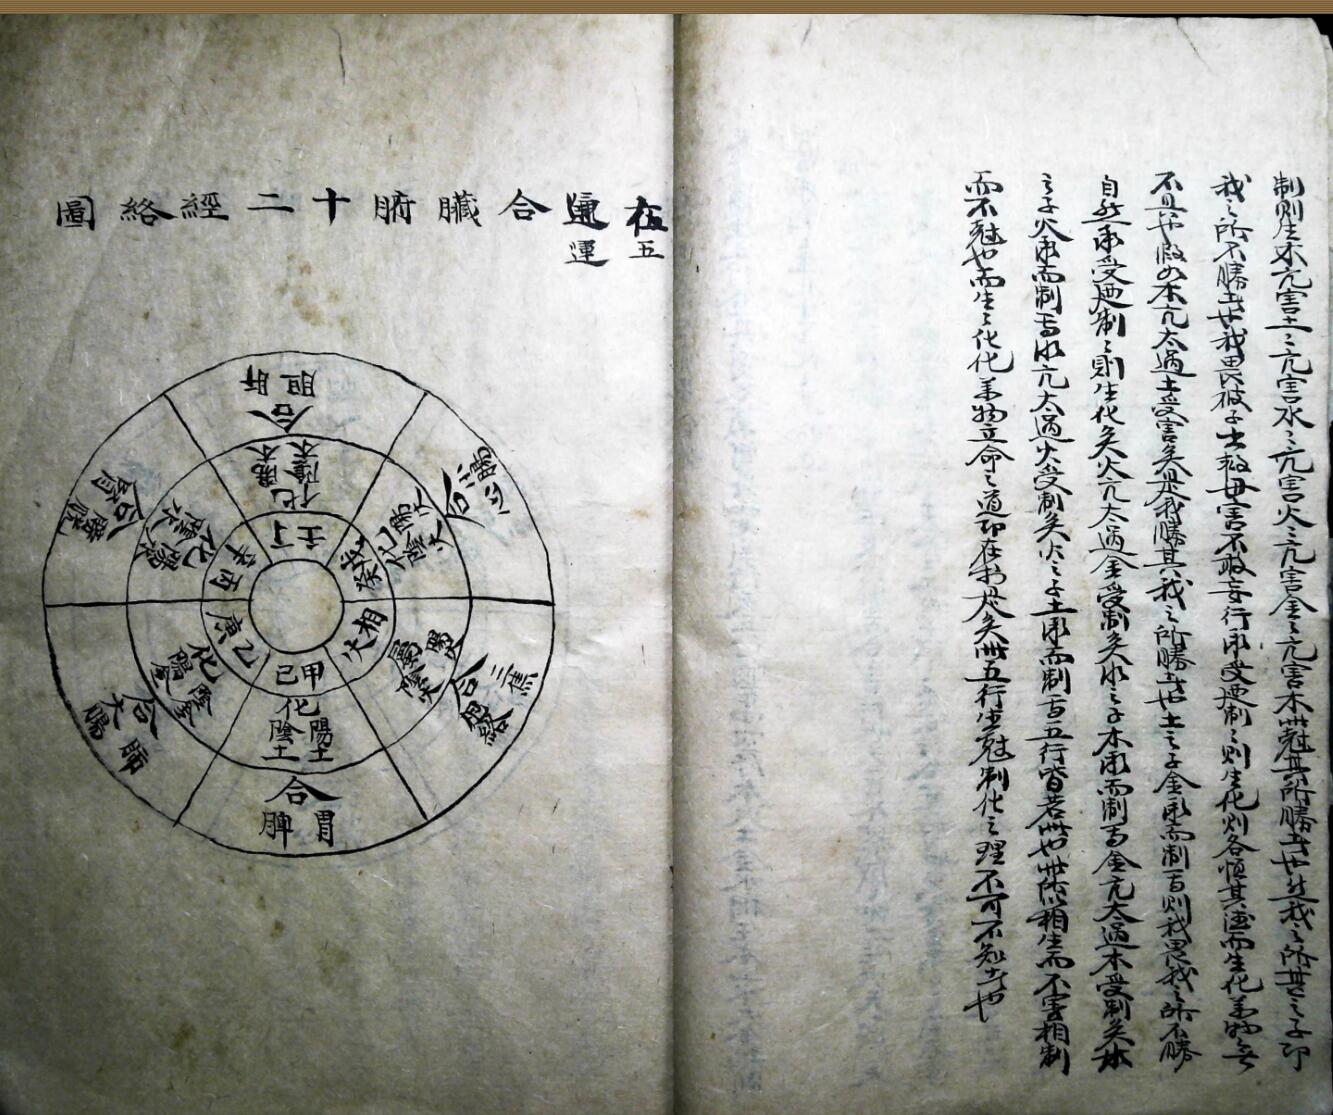 制則生木亢害土土亢害水水亢害火火亢害金金亢害木此尅其所勝者也然我之所其之子即
我之所不勝者也我畏彼子出救母害不敢妄行承受廼制制則生化則各恒其德而生化萬物無
不具也假如木亢太過土受害矣是我勝其我之所勝者也土之子金承而制焉則我畏我之所不勝
自然承受廼制制則生化矣火亢太過金受制矣水之子木承而制焉金亢太過木受制矣木
之子火承而制焉水亢太過火受制矣火之子土承而制焉五行皆若此也此所以相生而不害相制
而不尅也而生生化化萬物立命之道即在於是矣此五行生尅制化之理不可不知者也
五運合臟腑十二經絡圖
五
運
合
肝 胆
化
陽木 陰木
壬 丁
合
心 小腸
化
陽火 陰火
戊 癸
相火
屬
合
三焦 包絡
甲 己
化
陽土 陰土
合
胃 脾
乙 庚
化
陽金 陰金
合
大腸 肺
丙 辛
化
陽水 陰水
合
腎